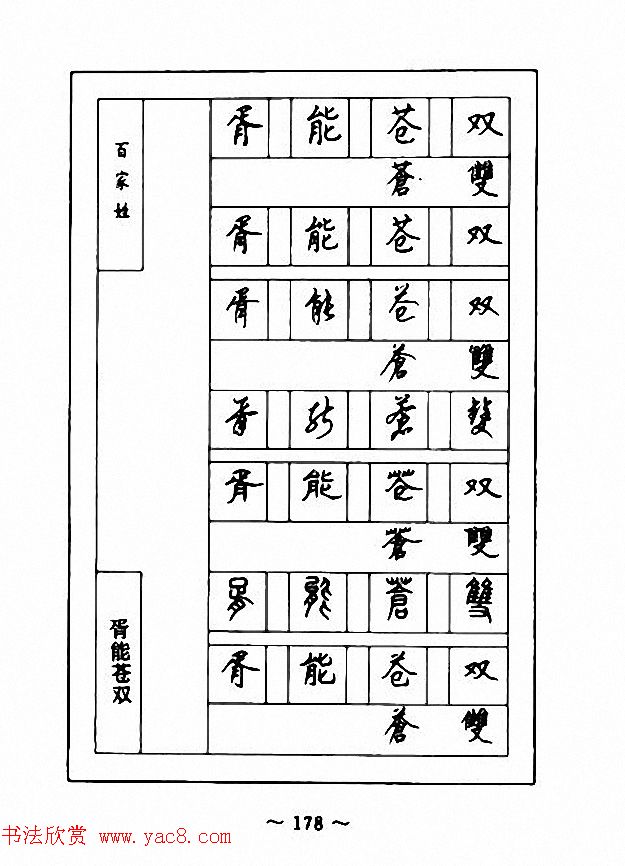 百家姓
胥 能 苍 双
蒼 雙
胥 能 苍 双
胥 能 苍 双
蒼 雙
胥 能 蒼 雙
胥 能 苍 双
蒼 雙
胥 能 蒼 雙
胥 能 苍 双
蒼 雙
胥能苍双
～ 178 ～
书法欣赏 www.yac8.com